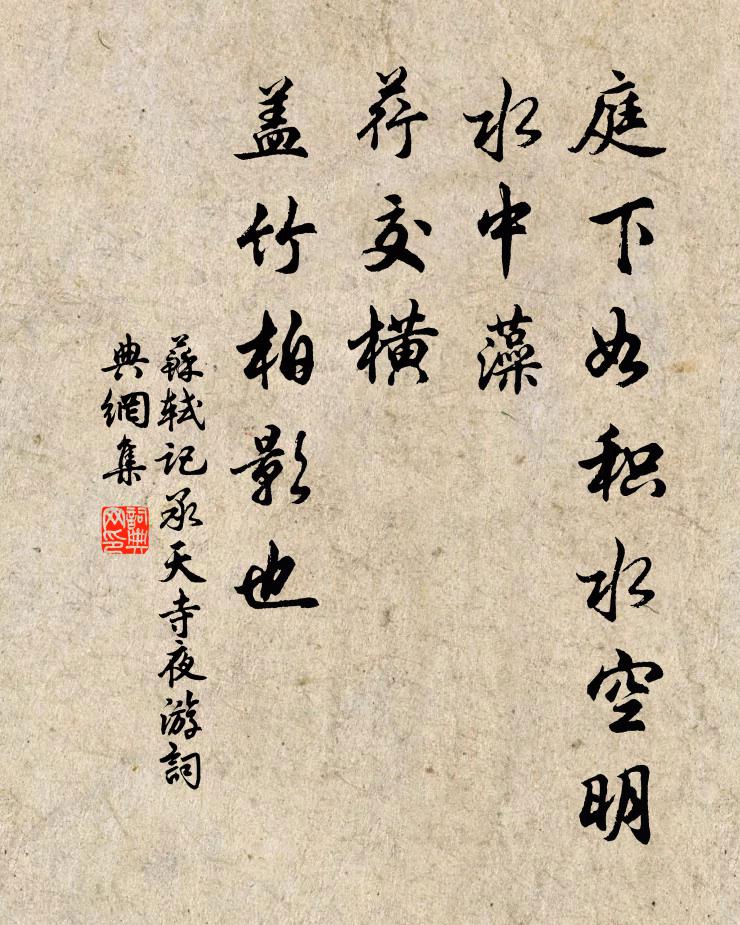 庭下如积水空明
水中藻
荇交横
盖竹柏影也
蘇軾记承天寺夜游詞
典網集
詞典
网印